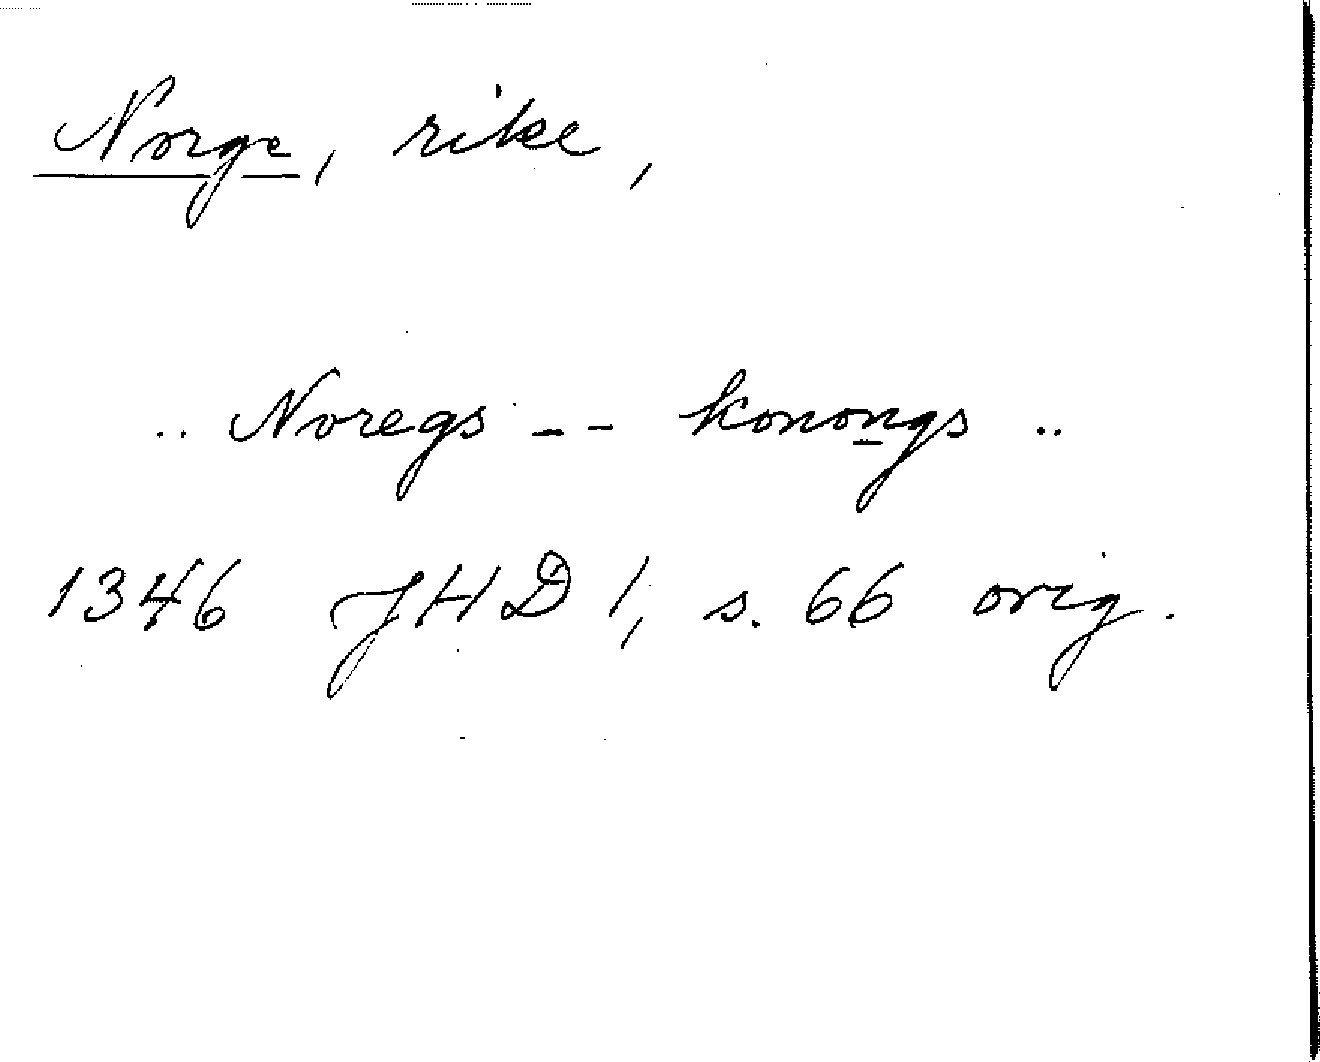 Norge, rike,
.. Noregs -- konongs ..
1346 JHD 1, s. 66 orig.